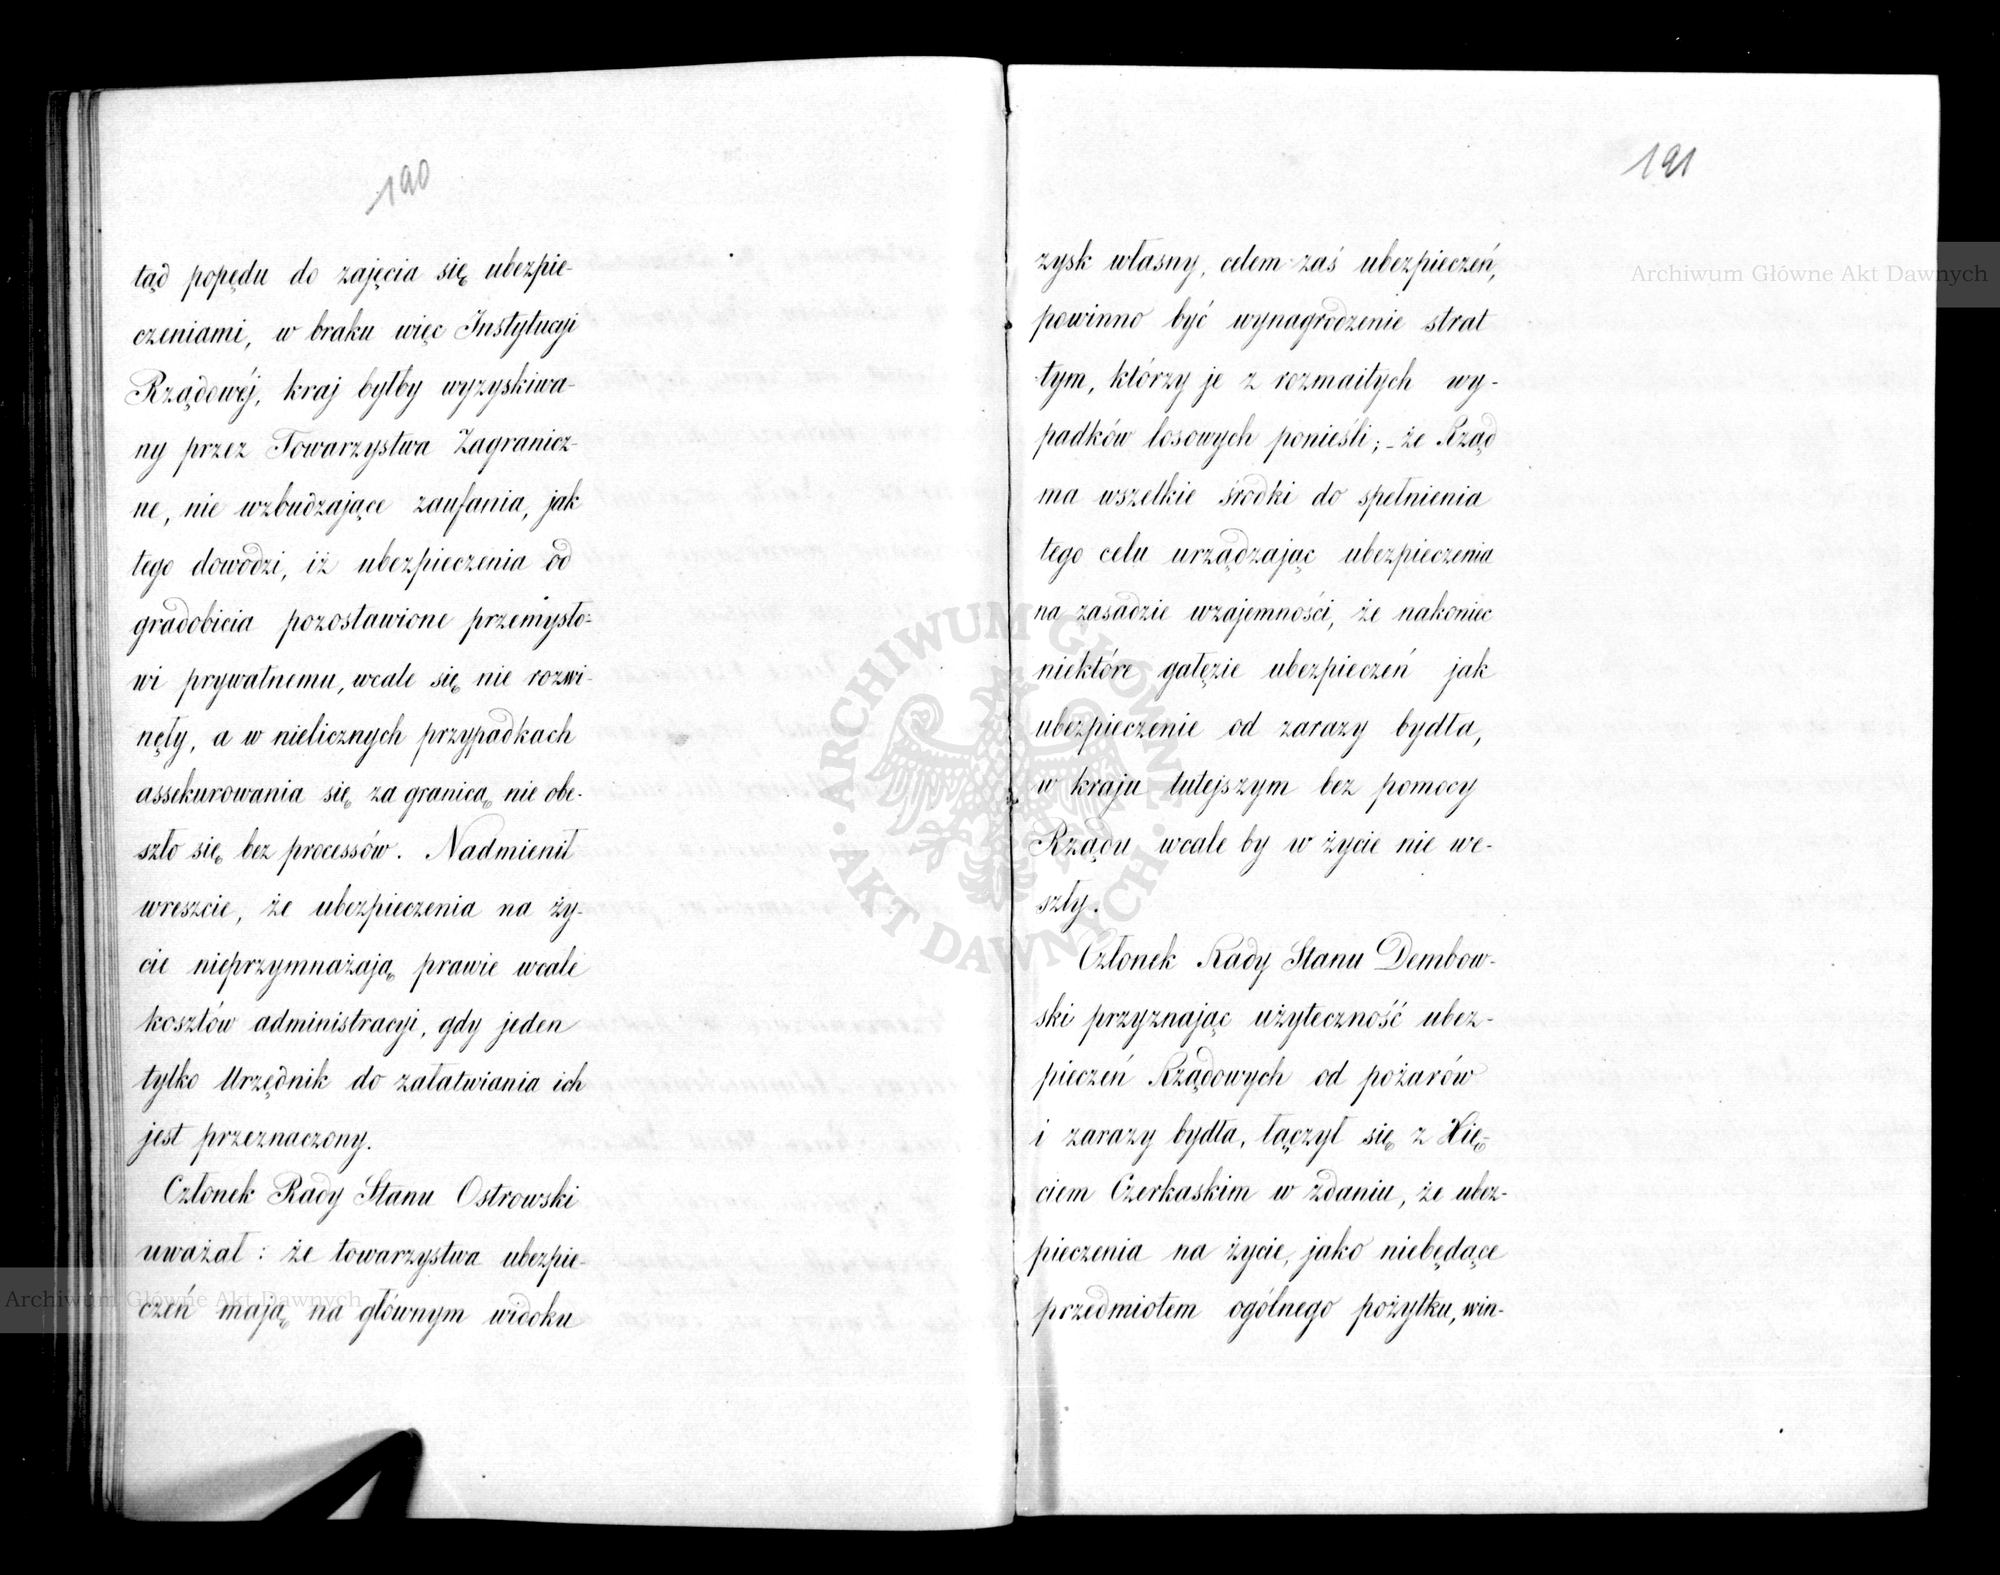 190
tąd popędu do zajęcia się ubezpie-
czeniami, w braku więc Instytucyi
Rządowéj, kraj byłby wyzyskiwa-
ny przez Towarzystwa Zagranicz-
ne, nie wzbudzające zaufania, jak
tego dowodzi, iż ubezpieczenia od
gradobicia pozostawione przemysło-
wi prywatnemu, wcale się nie rozwi-
nęły, a w nielicznych przypadkach
assekurowania się za granicą nie obe-
szło się bez processów. Nadmienił
wreszcie, że ubezpieczenia na ży-
cie nieprzymnażają prawie wcale
kosztów administracyi, gdy jeden
tylko Urzędnik do załatwiania ich
jest przeznaczony.
Członek Rady Stanu Ostrowski
uważał: że towarzystwa ubezpie-
czeń mają na głównym widoku
191
zysk własny, celem zaś ubezpieczeń,
powinno być wynagrodzenie strat
tym, którzy je z rozmaitych wy-
padków losowych ponieśli; - że Rząd
ma wszelkie środki do spełnienia
tego celu urządzając ubezpieczenia
na zasadzie wzajemności, że nakoniec
niektóre gałęzie ubezpieczeń jak
ubezpieczenie od zarazy bydła,
w kraju tutejszym bez pomocy
Rządu wcale by w życie nie we-
szły.
Członek Rady Stanu Dembow-
ski przyznając użyteczność ubez-
pieczeń Rządowych od pożarów
i zarazy bydła, łączył się z Xię-
ciem Czerkaskim w zdaniu, że ubez-
pieczenia na życie, jako niebędące
przedmiotem ogólnego pożytku, win-
Archiwum Główne Akt Dawnych
Archiwum Główne Akt Dawnych
ARCHIWUM GŁÓWNE
AKT DAWNYCH